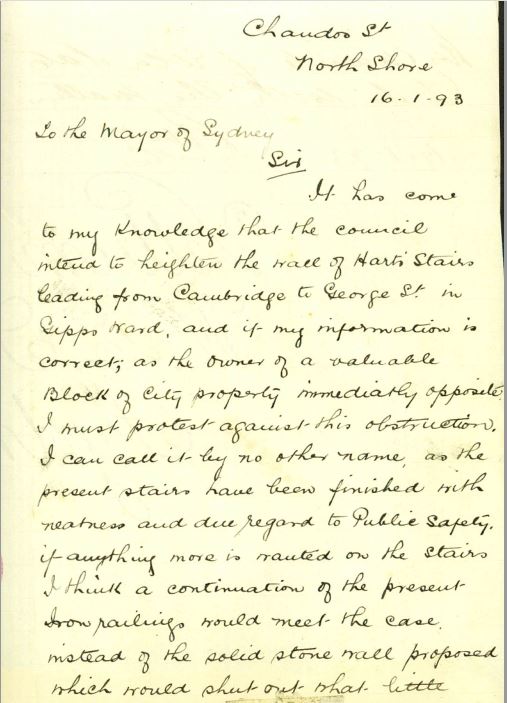 Chandos St
North Shore
16-1-93
To the Mayor of Sydney
Sir
It has come
to my Knowledge that the council
intend to heighten the wall of Harts Stairs
leading from Cambridge to George St. in
Gipps Ward, and if my information is
correct; as the owner of a valuable
Block of City property immediatly opposite
I must protest against this obstruction.
I can call it by no other name, as the
present stairs have been finished with
neatness and due regard to Public Safety.
if anything more is wanted on the Stairs
I think a continuation of the present
Iron railings would meet the case.
instead of the solid stone wall proposed
which would shut out what little